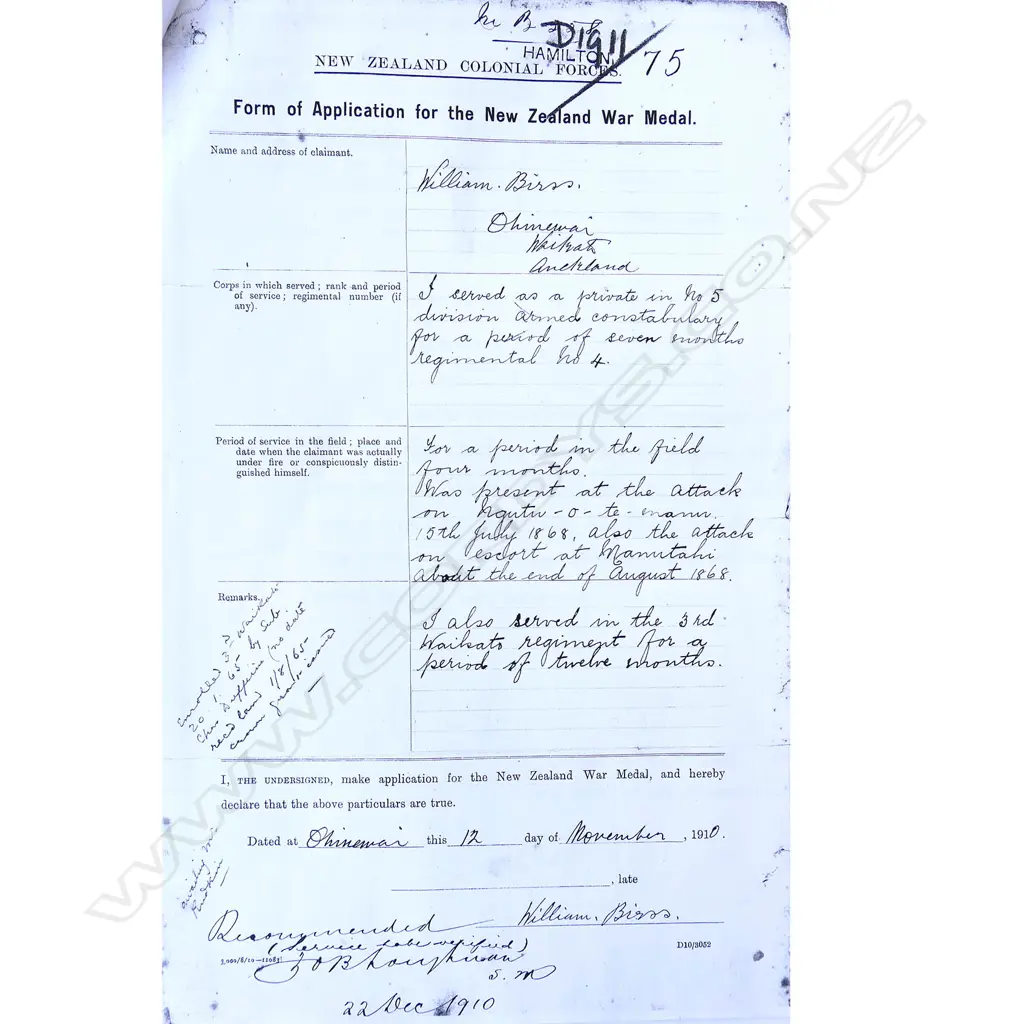 D1911/75
HAMILTON.
NEW ZEALAND COLONIAL FORCES.
Form of Application for the New Zealand War Medal.
Name and address of claimant.
William. Birss.
Ohinewai
Waikato
Auckland
Corps in which served; rank and period
of service; regimental number (if
any).
I served as a private in No 5
division Armed constabulary
for a period of seven months
regimental No 4.
Period of service in the field; place and
date when the claimant was actually
under fire or conspicuously distin-
guished himself.
For a period in the field
four months.
Was present at the attack
on Ngutu-o-te-manu.
15th July 1868, also the attack
on escort at Manutahi
about the end of August 1868.
Remarks.
I also served in the 3rd
Waikato regiment for a
period of twelve months.
Enrolled 3rd Waikato
20.1.65 by Sub.
(no date
recd land 1/8/65
crown grant issued
I, THE UNDERSIGNED, make application for the New Zealand War Medal, and hereby
declare that the above particulars are true.
Dated at Ohinewai this 12 day of November, 1910.
, late
William. Birss.
Recommended
(Service to be verified)
D10/3052
2,000/8/10—11083
S.M
22 Dec 1910
WWW.CORDYS.CO.NZ